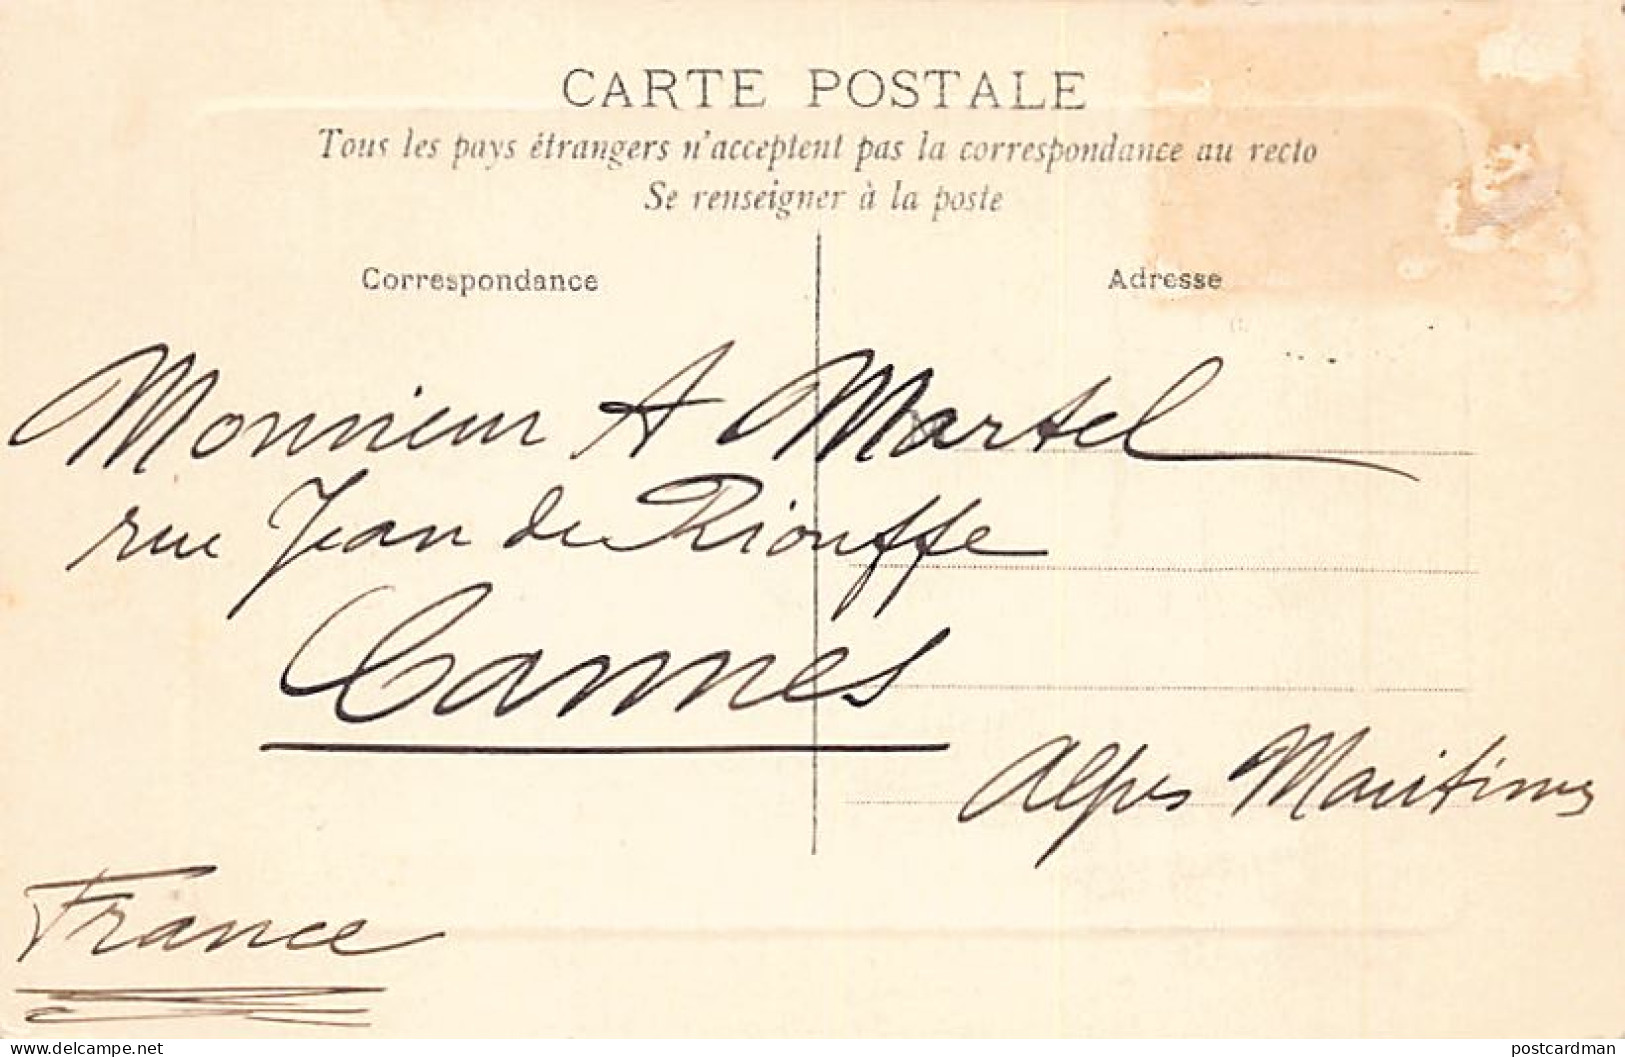 CARTE POSTALE
Tous les pays étrangers n'acceptent pas la correspondance au recto
Se renseigner à la poste
Correspondance
Adresse
Monsieur A Martel
rue Jean de Riouffe
Cannes
Alpes Maritimes
France
www.delcampe.net
postcardman